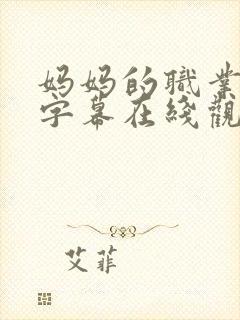 妈妈的職業
字幕在綫觀
艾菲